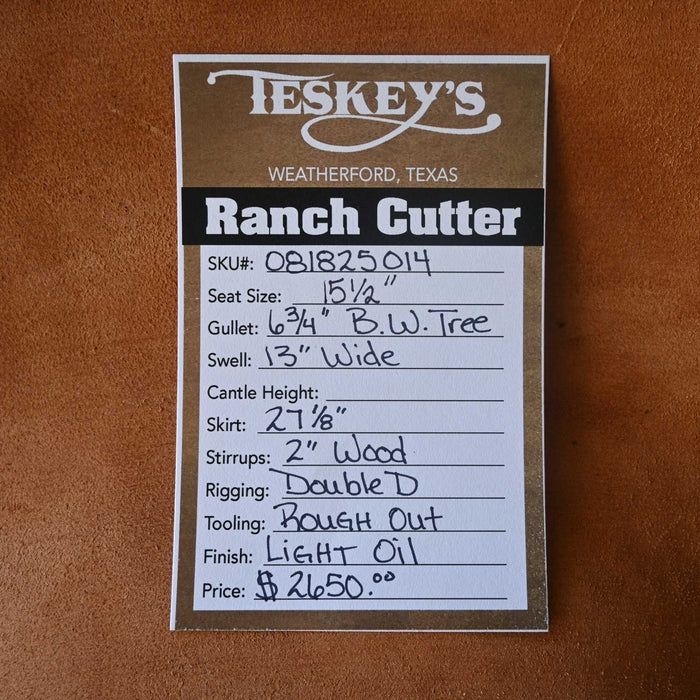 TESKEY'S
WEATHERFORD, TEXAS
Ranch Cutter
SKU#: 081825014
Seat Size: 15 1/2"
Gullet: 6 3/4" B.W. Tree
Swell: 13" Wide
Cantle Height:
Skirt: 27 1/8"
Stirrups: 2" Wood
Rigging: Double D
Tooling: Rough Out
Finish: Light Oil
Price: $ 2650.00